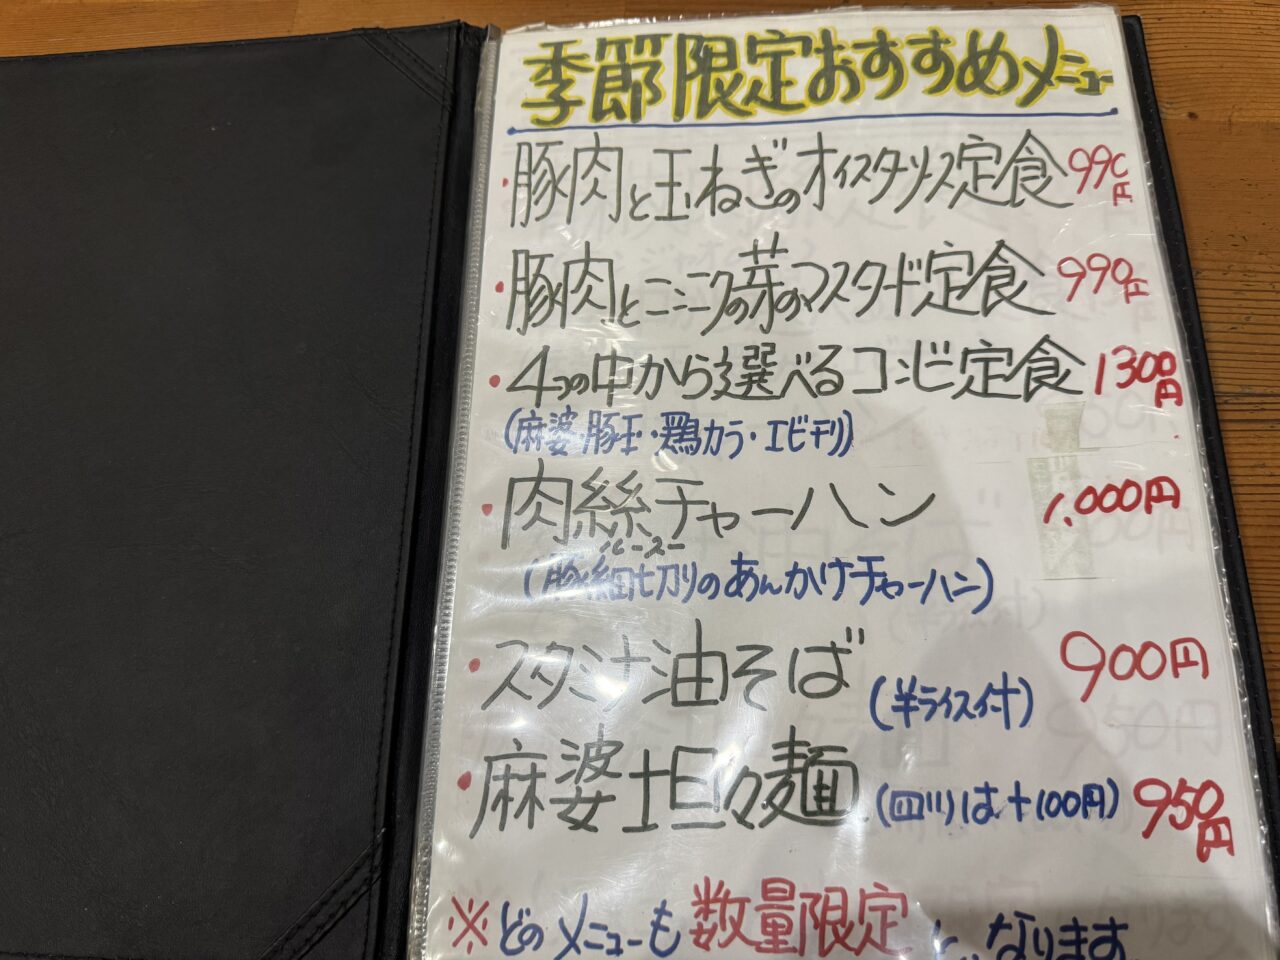 季節限定おすすめメニュー
・豚肉と玉ねぎのオイスターソース定食 990円
・豚肉とニンニクの芽のマスタード定食 990円
・4つの中から選べるコンビ定食 1300円
(麻婆・豚玉・鶏カラ・エビチリ)
・肉絲チャーハン 1,000円
ルースー
(豚細切りのあんかけチャーハン)
・スタミナ油そば (半ライス付) 900円
・麻婆坦々麺 (四川は+100円) 950円
※どのメニューも数量限定となります